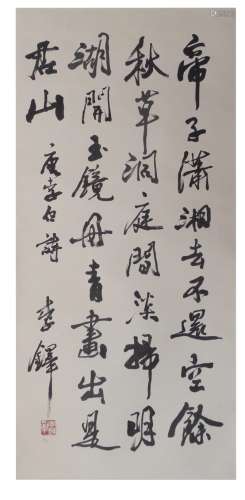 帝子潇湘去不還空餘
秋草洞庭間淡掃明
湖開玉鏡丹青畫出是
君山
唐李白詩 李鐸